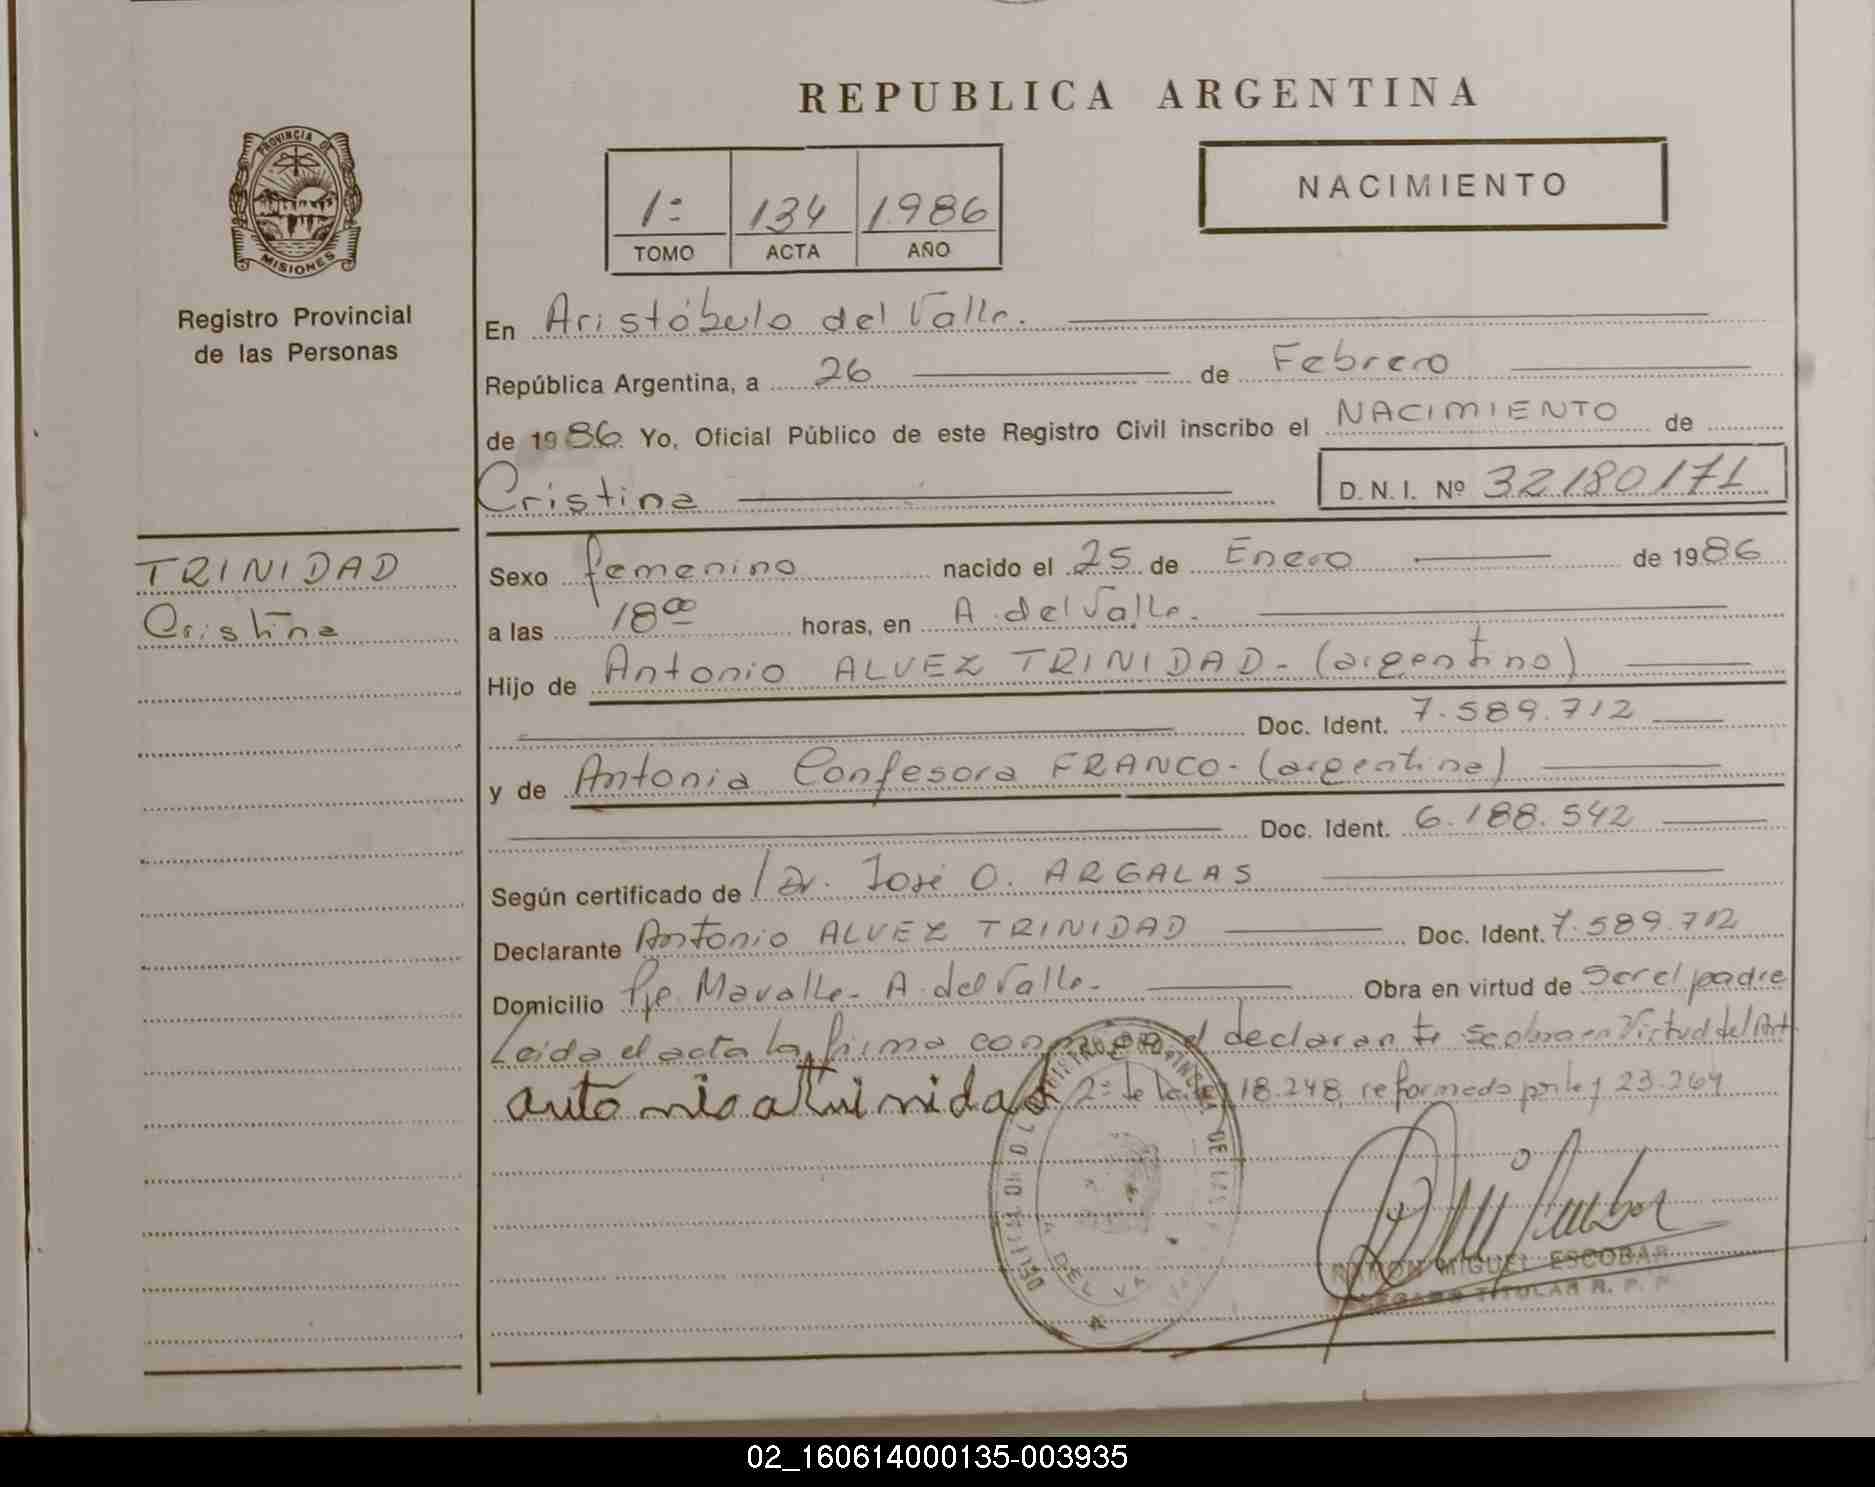 REPUBLICA ARGENTINA
PROVINCIA DE
MISIONES
Registro Provincial
de las Personas
1º 134 1986
TOMO ACTA AÑO
NACIMIENTO
En Aristóbulo del Valle.
República Argentina, a 26 de Febrero
de 1986. Yo, Oficial Público de este Registro Civil inscribo el NACIMIENTO de
Cristina D.N.I. Nº 32180171
TRINIDAD
Cristina
Sexo femenino nacido el 25 de Enero de 1986
a las 18 00 horas, en A. del Valle.
Hijo de Antonio ALVEZ TRINIDAD - (argentino)
Doc. Ident. 7.589.712
y de Antonia Confesora FRANCO - (argentina)
Doc. Ident. 6.188.542
Según certificado de Dr. José O. ARGALAS
Declarante Antonio ALVEZ TRINIDAD Doc. Ident. 7.589.712
Domicilio Pje Mavalle - A. del Valle - Obra en virtud de Ser el padre
Leida el acta la firma conmigo el declarante se obra en Virtud del Art
2º de la ley 18.248 reformada por ley 23.264
antonio a trinidad
A DEL VA
RAMON MIGUEL ESCOBAR
TITULAR R. P. P.
02_160614000135-003935